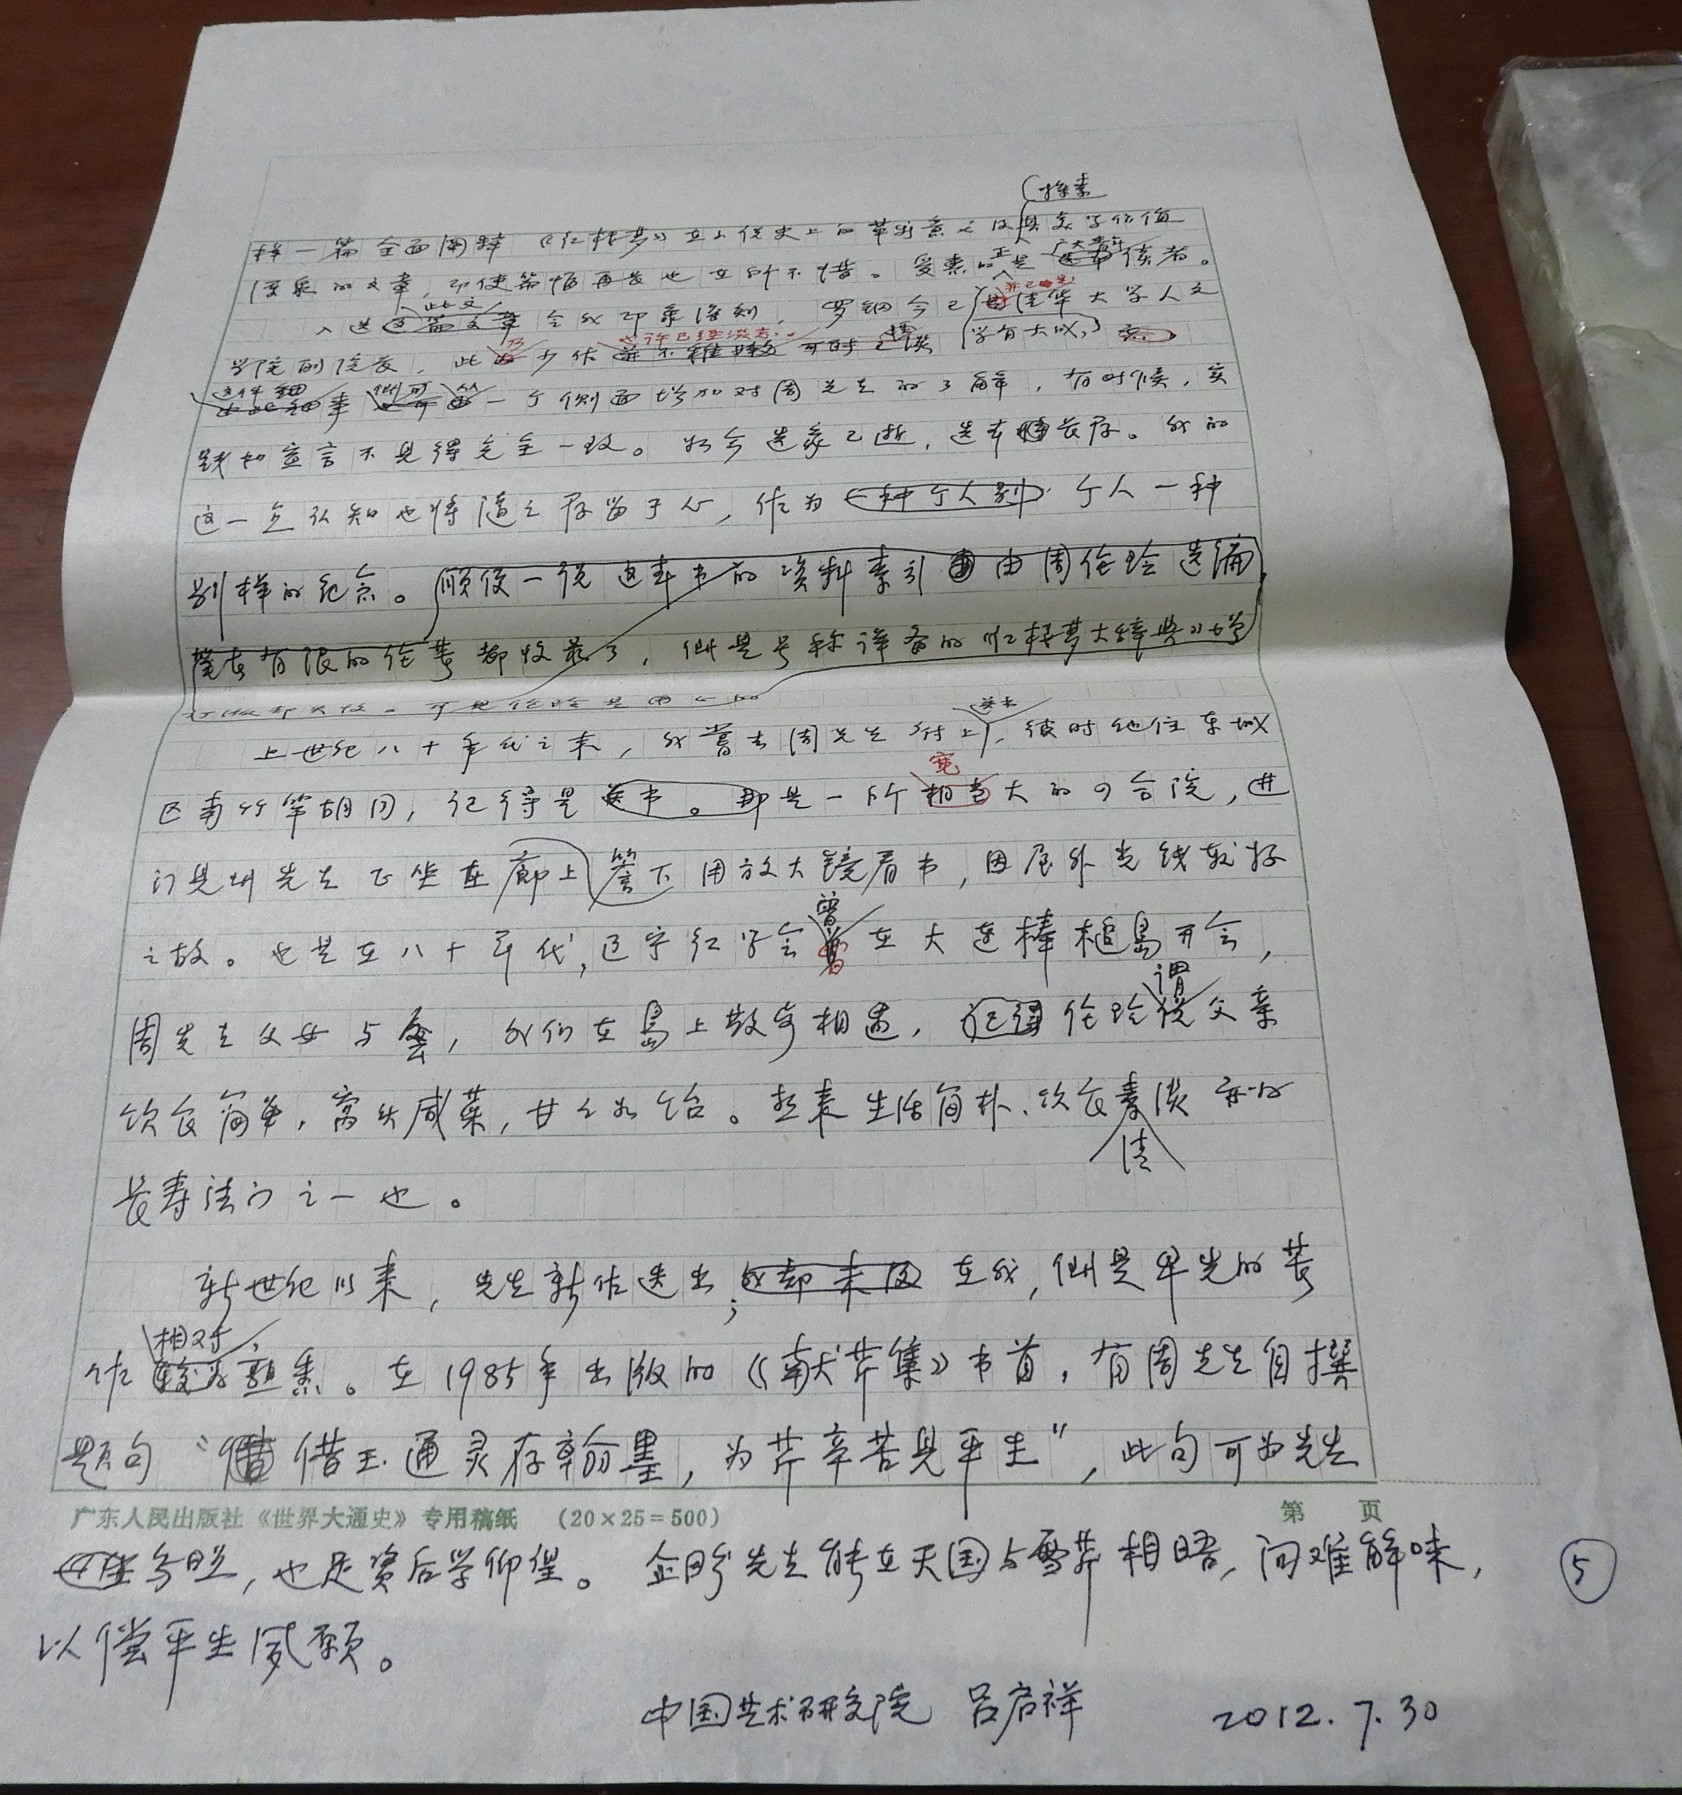 探索
样一篇全面阐释《红楼梦》在小说史上的革新意义及其美学价值
的文章，即使篇幅再长也在所不惜。受惠的正是广大青年读者。
入选这篇文章 此文 令我印象深刻，罗钢今已是清华大学人文
学院副院长，此乃少作 也许已经淡忘 学有大成，
这件细事 似可 从一个侧面增加对周先生的了解，有时候，实
践和宣言不见得完全一致。如今选家已逝，选本长存。我的
这一点认知也将随之存留于心，作为一种个人别 个人一种
别样的纪念。顺便一说这本书的资料索引由周伦玲选编
笔者有限的作著都收录了，倒是号称详备的《红楼梦大辞典》增
上世纪八十年代之末，我尝去周先生府上送书，彼时他住东城
区南竹竿胡同，记得是送书。那是一所相当宽大的四合院，进
门见周先生正坐在廊上檐下用放大镜看书，因屋外光线较好
之故。也是在八十年代，辽宁红学会曾在大连棒槌岛开会，
周先生父女与会，我们在岛上散步相遇，记得伦玲说谓父亲
饮食简单，窝头咸菜，甘之如饴。想来生活简朴、饮食素淡清亦为
长寿法门之一也。
新世纪以来，先生新作迭出；我却未及 在我，倒是早先的著
作较为相对熟悉。在1985年出版的《献芹集》书首，有周先生自撰
题句“借玉通灵存翰墨，为芹辛苦见平生”，此句可为先生
广东人民出版社《世界大通史》专用稿纸 （20×25=500） 第 页
写照，也足资后学仰望。企盼先生能在天国与雪芹相晤，问难解味，
⑤
以偿平生夙愿。
中国艺术研究院 吕启祥 2012.7.30